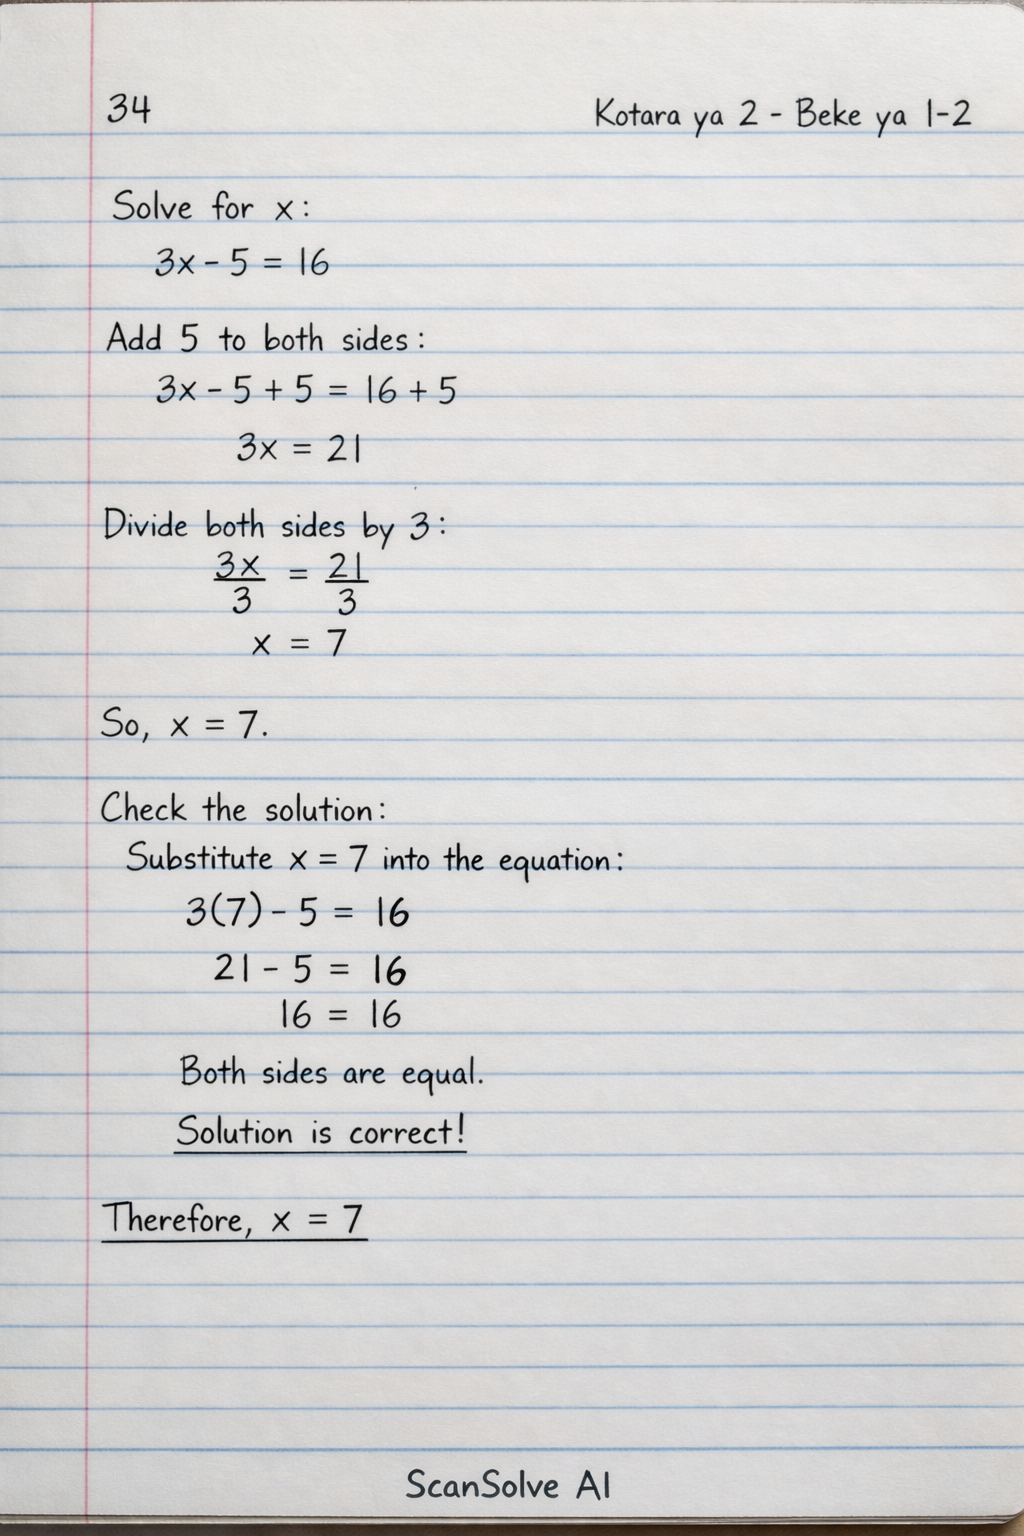 34
Kotara ya 2 - Beke ya 1-2
Solve for x:
3x - 5 = 16
Add 5 to both sides:
3x - 5 + 5 = 16 + 5
3x = 21
Divide both sides by 3:
3x/3 = 21/3
x = 7
So, x = 7.
Check the solution:
Substitute x = 7 into the equation:
3(7) - 5 = 16
21 - 5 = 16
16 = 16
Both sides are equal.
Solution is correct!
Therefore, x = 7
ScanSolve AI